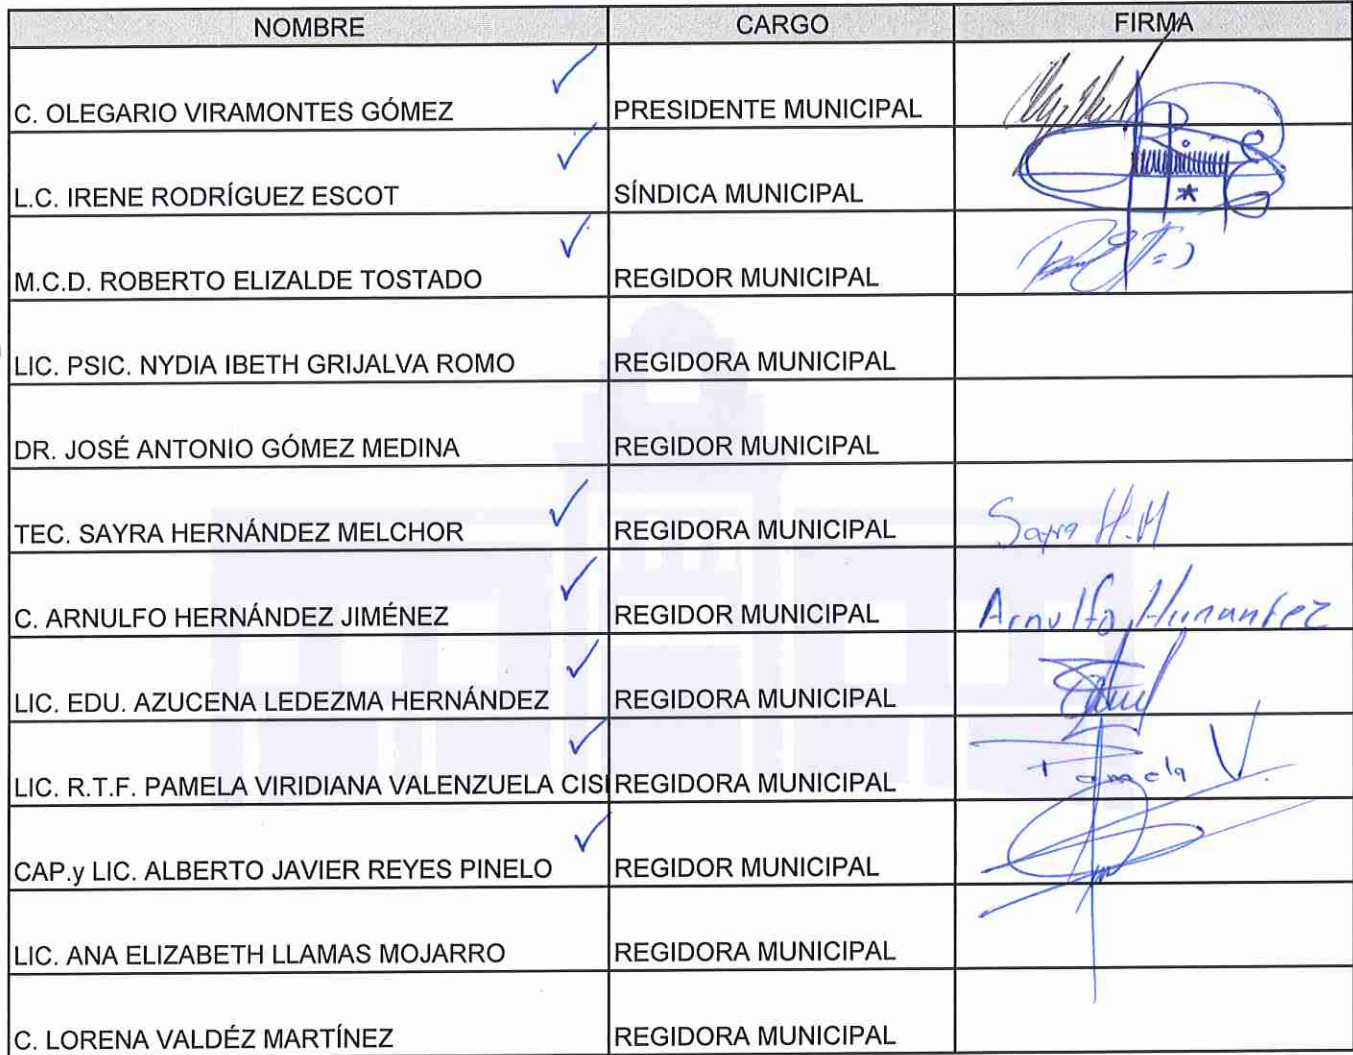 NOMBRE CARGO FIRMA
C. OLEGARIO VIRAMONTES GÓMEZ PRESIDENTE MUNICIPAL
L.C. IRENE RODRÍGUEZ ESCOT SÍNDICA MUNICIPAL
M.C.D. ROBERTO ELIZALDE TOSTADO REGIDOR MUNICIPAL
LIC. PSIC. NYDIA IBETH GRIJALVA ROMO REGIDORA MUNICIPAL
DR. JOSÉ ANTONIO GÓMEZ MEDINA REGIDOR MUNICIPAL
TEC. SAYRA HERNÁNDEZ MELCHOR REGIDORA MUNICIPAL Sayra H.M
C. ARNULFO HERNÁNDEZ JIMÉNEZ REGIDOR MUNICIPAL Arnulfo
LIC. EDU. AZUCENA LEDEZMA HERNÁNDEZ REGIDORA MUNICIPAL
LIC. R.T.F. PAMELA VIRIDIANA VALENZUELA CIS REGIDORA MUNICIPAL Pamela V.
CAP.y LIC. ALBERTO JAVIER REYES PINELO REGIDOR MUNICIPAL
LIC. ANA ELIZABETH LLAMAS MOJARRO REGIDORA MUNICIPAL
C. LORENA VALDÉZ MARTÍNEZ REGIDORA MUNICIPAL